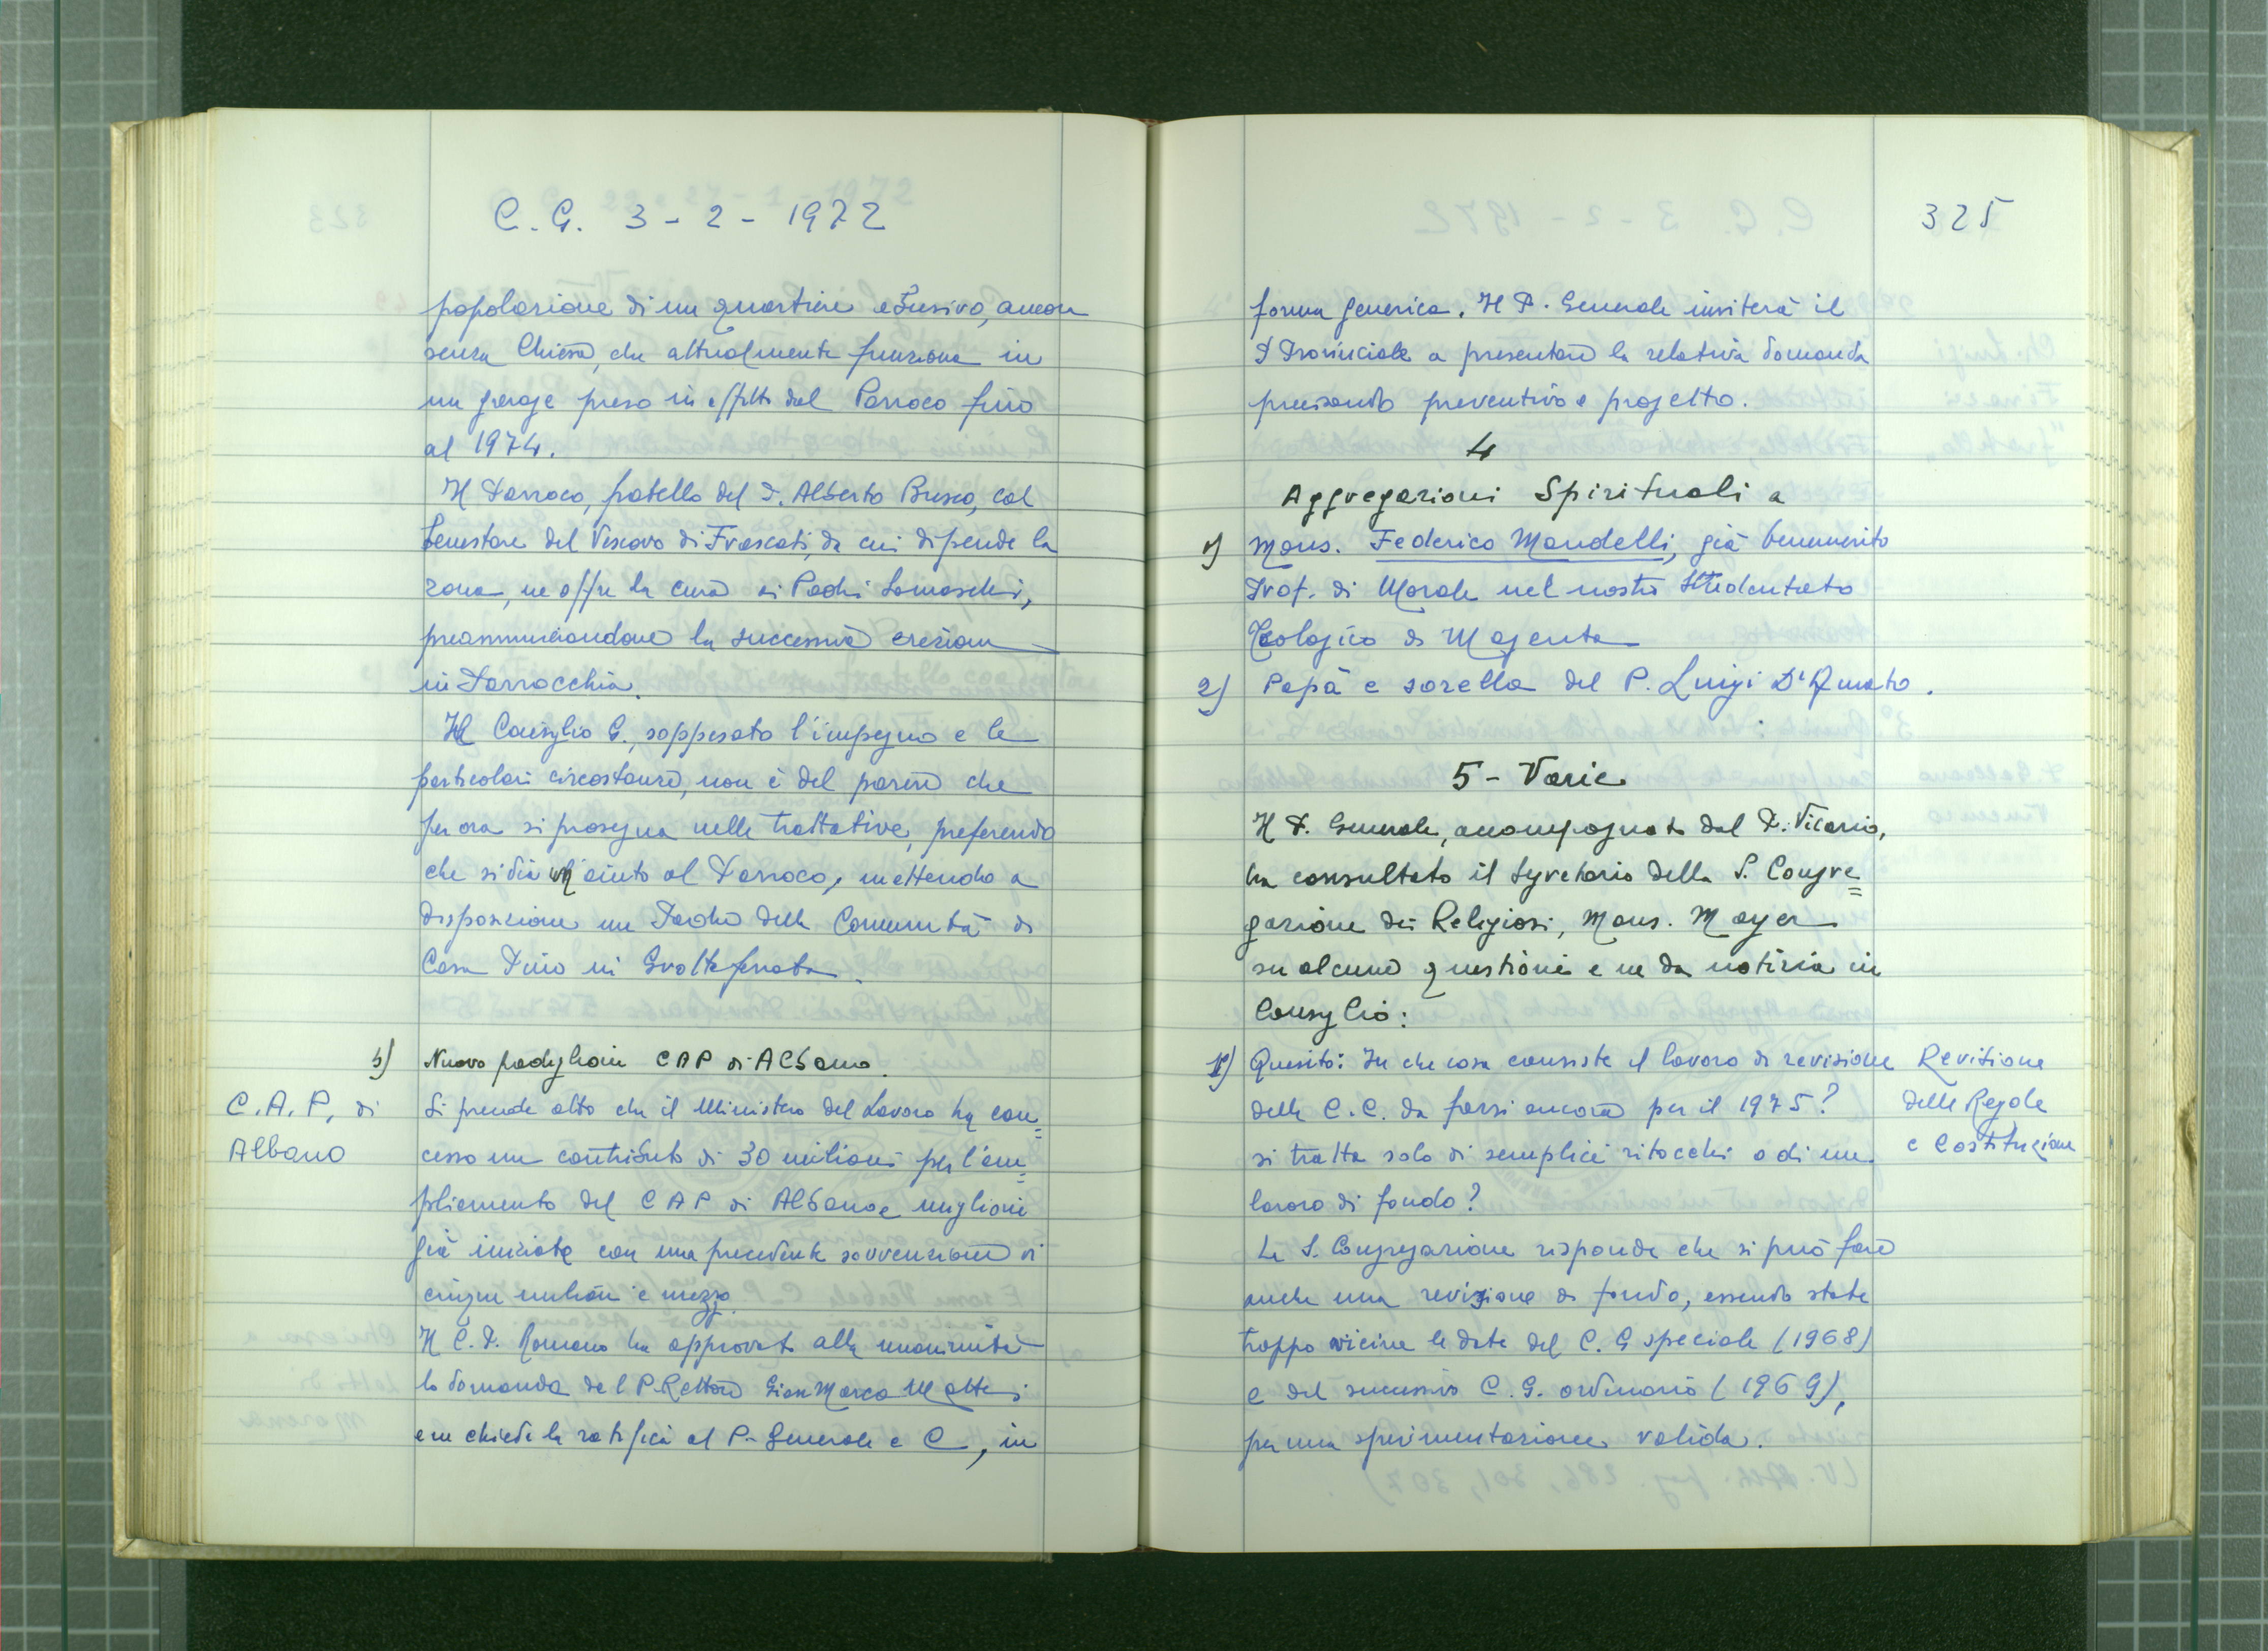 C.G. 3-2-1972
popolazione di un quartiere abusivo, ancora
senza Chiesa, che attualmente funziona in
un garage preso in affitto dal Parroco fino
al 1974.
Il Parroco, fratello del P. Alberto Busco, col
benestare del Vescovo di Frascati, da cui dipende la
zona, ne offre la cura ai Padri Somaschi,
preannunciandone la successiva erezione
in Parrocchia.
Il Consiglio G., soppesato l'impegno e le
particolari circostanze, non è del parere che
per ora si prosegua nelle trattative, preferendo
che si dia aiuto al Parroco, mettendo a
disposizione un Padre della Comunità di
Casa Pino in Grottaferrata.
b) Nuovo padiglione CAP di Albano.
C.A.P. di
Albano
Si prende atto che il Ministero del Lavoro ha con=
cesso un contributo di 30 milioni per l'am=
pliamento del CAP di Albano e migliorie
già iniziate con una precedente sovvenzione di
cinque milioni e mezzo.
Il C.P. Romano ha approvato alla unanimità
la domanda del P. Rettore Gian Marco Mattei
e ne chiede la ratifica al P. Generale e C, in
325
forma generica. Il P. Generale inviterà il
P Provinciale a presentare la relativa domanda
precisando preventivo e progetto.
4
Aggregazioni Spirituali a
1) Mons. Federico Mandelli, già benemerito
Prof. di Morale nel nostro Studentato
Teologico di Magenta
2) Papà e sorella del P. Luigi D'Amato.
5 - Varie
Il P. Generale, accompagnato dal P. Vicario,
ha consultato il Segretario della S. Congre=
gazione dei Religiosi, Mons. Mayer
su alcune questioni e ne da notizia in
Consiglio:
1) Quesito: In che cosa consiste il lavoro di revisione
delle C.C. da farsi ancora per il 1975?
si tratta solo di semplici ritocchi o di un
lavoro di fondo?
Revisione
delle Regole
e Costituzione
La S. Congregazione risponde che si può fare
anche una revisione di fondo, essendo state
troppo vicine le date del C.G speciale (1968)
e del successivo C.G. ordinario (1969),
per una sperimentazione valida.